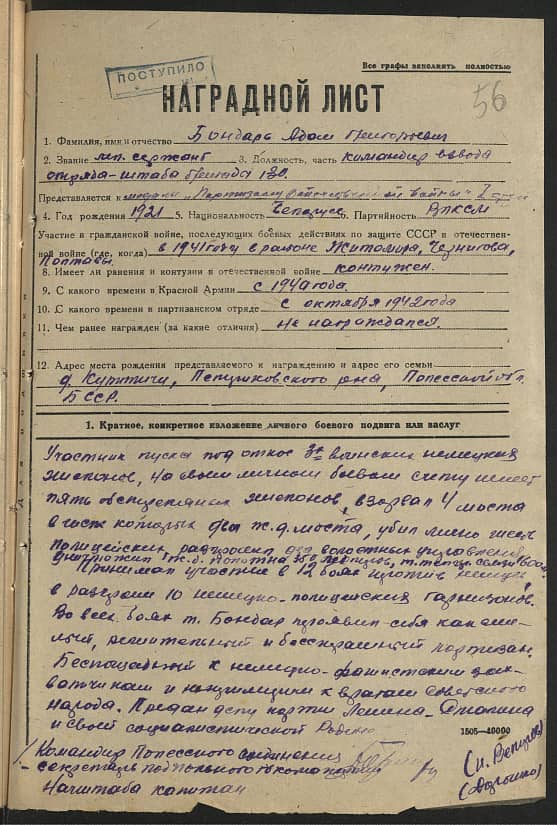 Все графы заполнять полностью
ПОСТУПИЛО
56
НАГРАДНОЙ ЛИСТ
1. Фамилия, имя и отчество Бондарь Адам Григорьевич
2. Звание мл. сержант 3. Должность, часть командир взвода
отряда штаба бригады 130.
Представляется к медали „Партизану Отечественной войны" I
4. Год рождения 1921 5. Национальность Беларус 6. Партийность ВЛКСМ
Участие в гражданской войне, последующих боевых действиях по защите СССР и отечествен-
ной войне (где, когда) в 1941 году в районе Житомира, Чернигова,
Полтавы.
8. Имеет ли ранения и контузии в отечественной войне контужен.
9. С какого времени в Красной Армии с 1940 года.
10. С какого времени в партизанском отряде с октября 1942 года
11. Чем ранее награжден (за какие отличия) не награждался.
12. Адрес места рождения представляемого к награждению и адрес его семьи
д. Куритичи, Петриковского р-на, Полесской обл.
БССР.
1. Краткое, конкретное изложение личного боевого подвига или заслуг
Участник пуска под откос 3х воинских немецких
эшелонов, на своем личном боевом счету имеет
пять обстрелянных эшелонов, взорвал 4 моста
в числе которых два ж.д. моста, убил лично шесть
полицейских, разгромил два волостных управления
ж.д. полотна 350
Принимал участие в 12 боях против немцев,
в разгроме 10 немецко-полицейских гарнизонов.
Во всех боях т. Бондарь проявил себя как сме-
лый, решительный и бесстрашный партизан.
Беспощадный к немецко-фашистским зах-
ватчикам и к врагам советского
народа. Предан делу партии Ленина-Сталина
и своей социалистической Родине
1505—40000
Командир Полесского соединения
секретарь подпольного обкома
Начштаба капитан